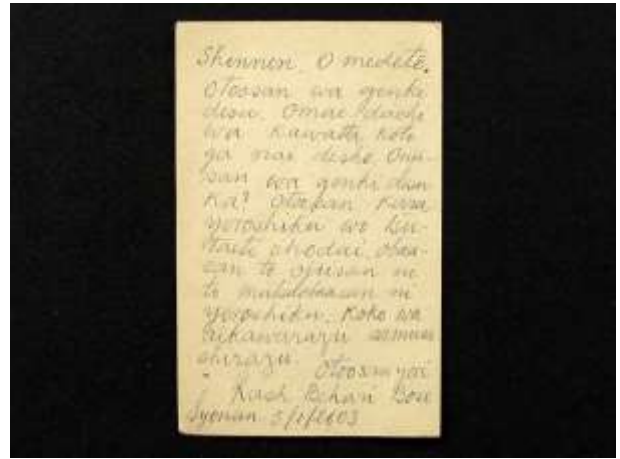 Shinnen O medete.
Otoosan wa genki
desu. Omai dachi
wa Kawatta koto
ga nai desho. Onii-
san wa genki desu
Ka? Otoosan Kara
yoroshiku wo
chodai. Obaa-
san to ojiisan ni
to ni
yoroshiku. Koko wa
aikawarazu samusa
shirazu.
Otoosan yori
Rash Behari Bose
Syonan 3/1/2603